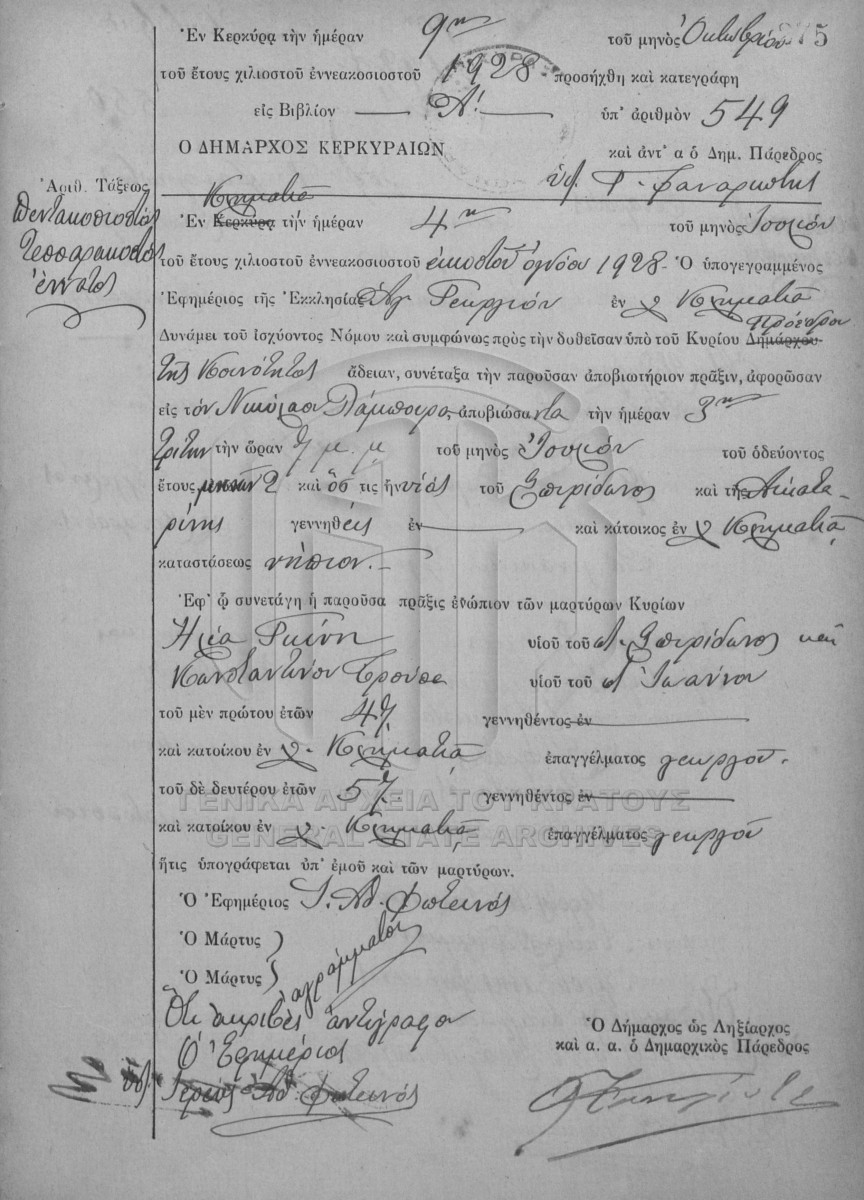 Ἐν Κερκύρᾳ τὴν ἡμέραν 9ην τοῦ μηνὸς Ὀκτωβρίου 5
τοῦ ἔτους χιλιοστοῦ ἐννεακοσιοστοῦ 1928 προσήχθη καὶ κατεγράφη
εἰς Βιβλίον Α! ὑπ' ἀριθμὸν 549
Ο ΔΗΜΑΡΧΟΣ ΚΕΡΚΥΡΑΙΩΝ καὶ ἀντ' α ὁ Δημ. Πάρεδρος
Ἀριθ. Τάξεως
πεντακοσιοστὸς
τεσσαρακοστὸς
ἔννατος
Κρηματιᾷ
Ἐν Κερκύρᾳ τὴν ἡμέραν 4ην τοῦ μηνὸς Ἰουλίου
τοῦ ἔτους χιλιοστοῦ ἐννεακοσιοστοῦ εἰκοστοῦ ὀγδόου 1928 - Ὁ ὑπογεγραμμένος
Ἐφημέριος τῆς Ἐκκλησίας Ἁγ Γεωργίου ἐν χ Κρηματιᾷ
Πρόεδρου
Δυνάμει τοῦ ἰσχύοντος Νόμου καὶ συμφώνως πρὸς τὴν δοθεῖσαν ὑπὸ τοῦ Κυρίου Δημάρχου
τῆς Κοινότητος ἄδειαν, συνέταξα τὴν παροῦσαν ἀποβιωτήριον πρᾶξιν, ἀφορῶσαν
εἰς τὸν Νικόλαον ἀποβιώσαντα τὴν ἡμέραν 3ην
τρίτην τὴν ὥραν 7 μ. μ τοῦ μηνὸς Ἰουλίου τοῦ ὁδεύοντος
ἔτους μηνῶν 2 καὶ ὅστις ἦν υἱὸς τοῦ Σπυρίδωνος καὶ τῆς Αἰκατε
ρίνης γεννηθεὶς ἐν καὶ κάτοικος ἐν χ Κρηματιᾷ
καταστάσεως νήπιον. -
Ἐφ' ᾧ συνετάγη ἡ παροῦσα πρᾶξις ἐνώπιον τῶν μαρτύρων Κυρίων
Ἠλία Γκίνη υἱοῦ τοῦ Σπυρίδωνος καὶ
Κωνσταντίνου υἱοῦ τοῦ Ἰωάννου
τοῦ μὲν πρώτου ἐτῶν 47 γεννηθέντος ἐν
καὶ κατοίκου ἐν χ. Κρηματιᾷ ἐπαγγέλματος γεωργοῦ.
τοῦ δὲ δευτέρου ἐτῶν 57 γεννηθέντος ἐν
ΓΕΝΙΚΑ ΑΡΧΕΙΑ ΤΟΥ ΚΡΑΤΟΥΣ
καὶ κατοίκου ἐν χ. Κρηματιᾷ ἐπαγγέλματος γεωργοῦ
GENERAL STATE ARCHIVES
ἥτις ὑπογράφεται ὑπ' ἐμοῦ καὶ τῶν μαρτύρων.
Ὁ Ἐφημέριος Φωτεινός
Ὁ Μάρτυς
Ὁ Μάρτυς ἀγράμματοι
Ὅτι ἀκριβὲς ἀντίγραφον
Ὁ Ἐφημέριος
Ἱερεὺς Φωτεινός
Ὁ Δήμαρχος ὡς Ληξίαρχος
καὶ α. α. ὁ Δημαρχικὸς Πάρεδρος